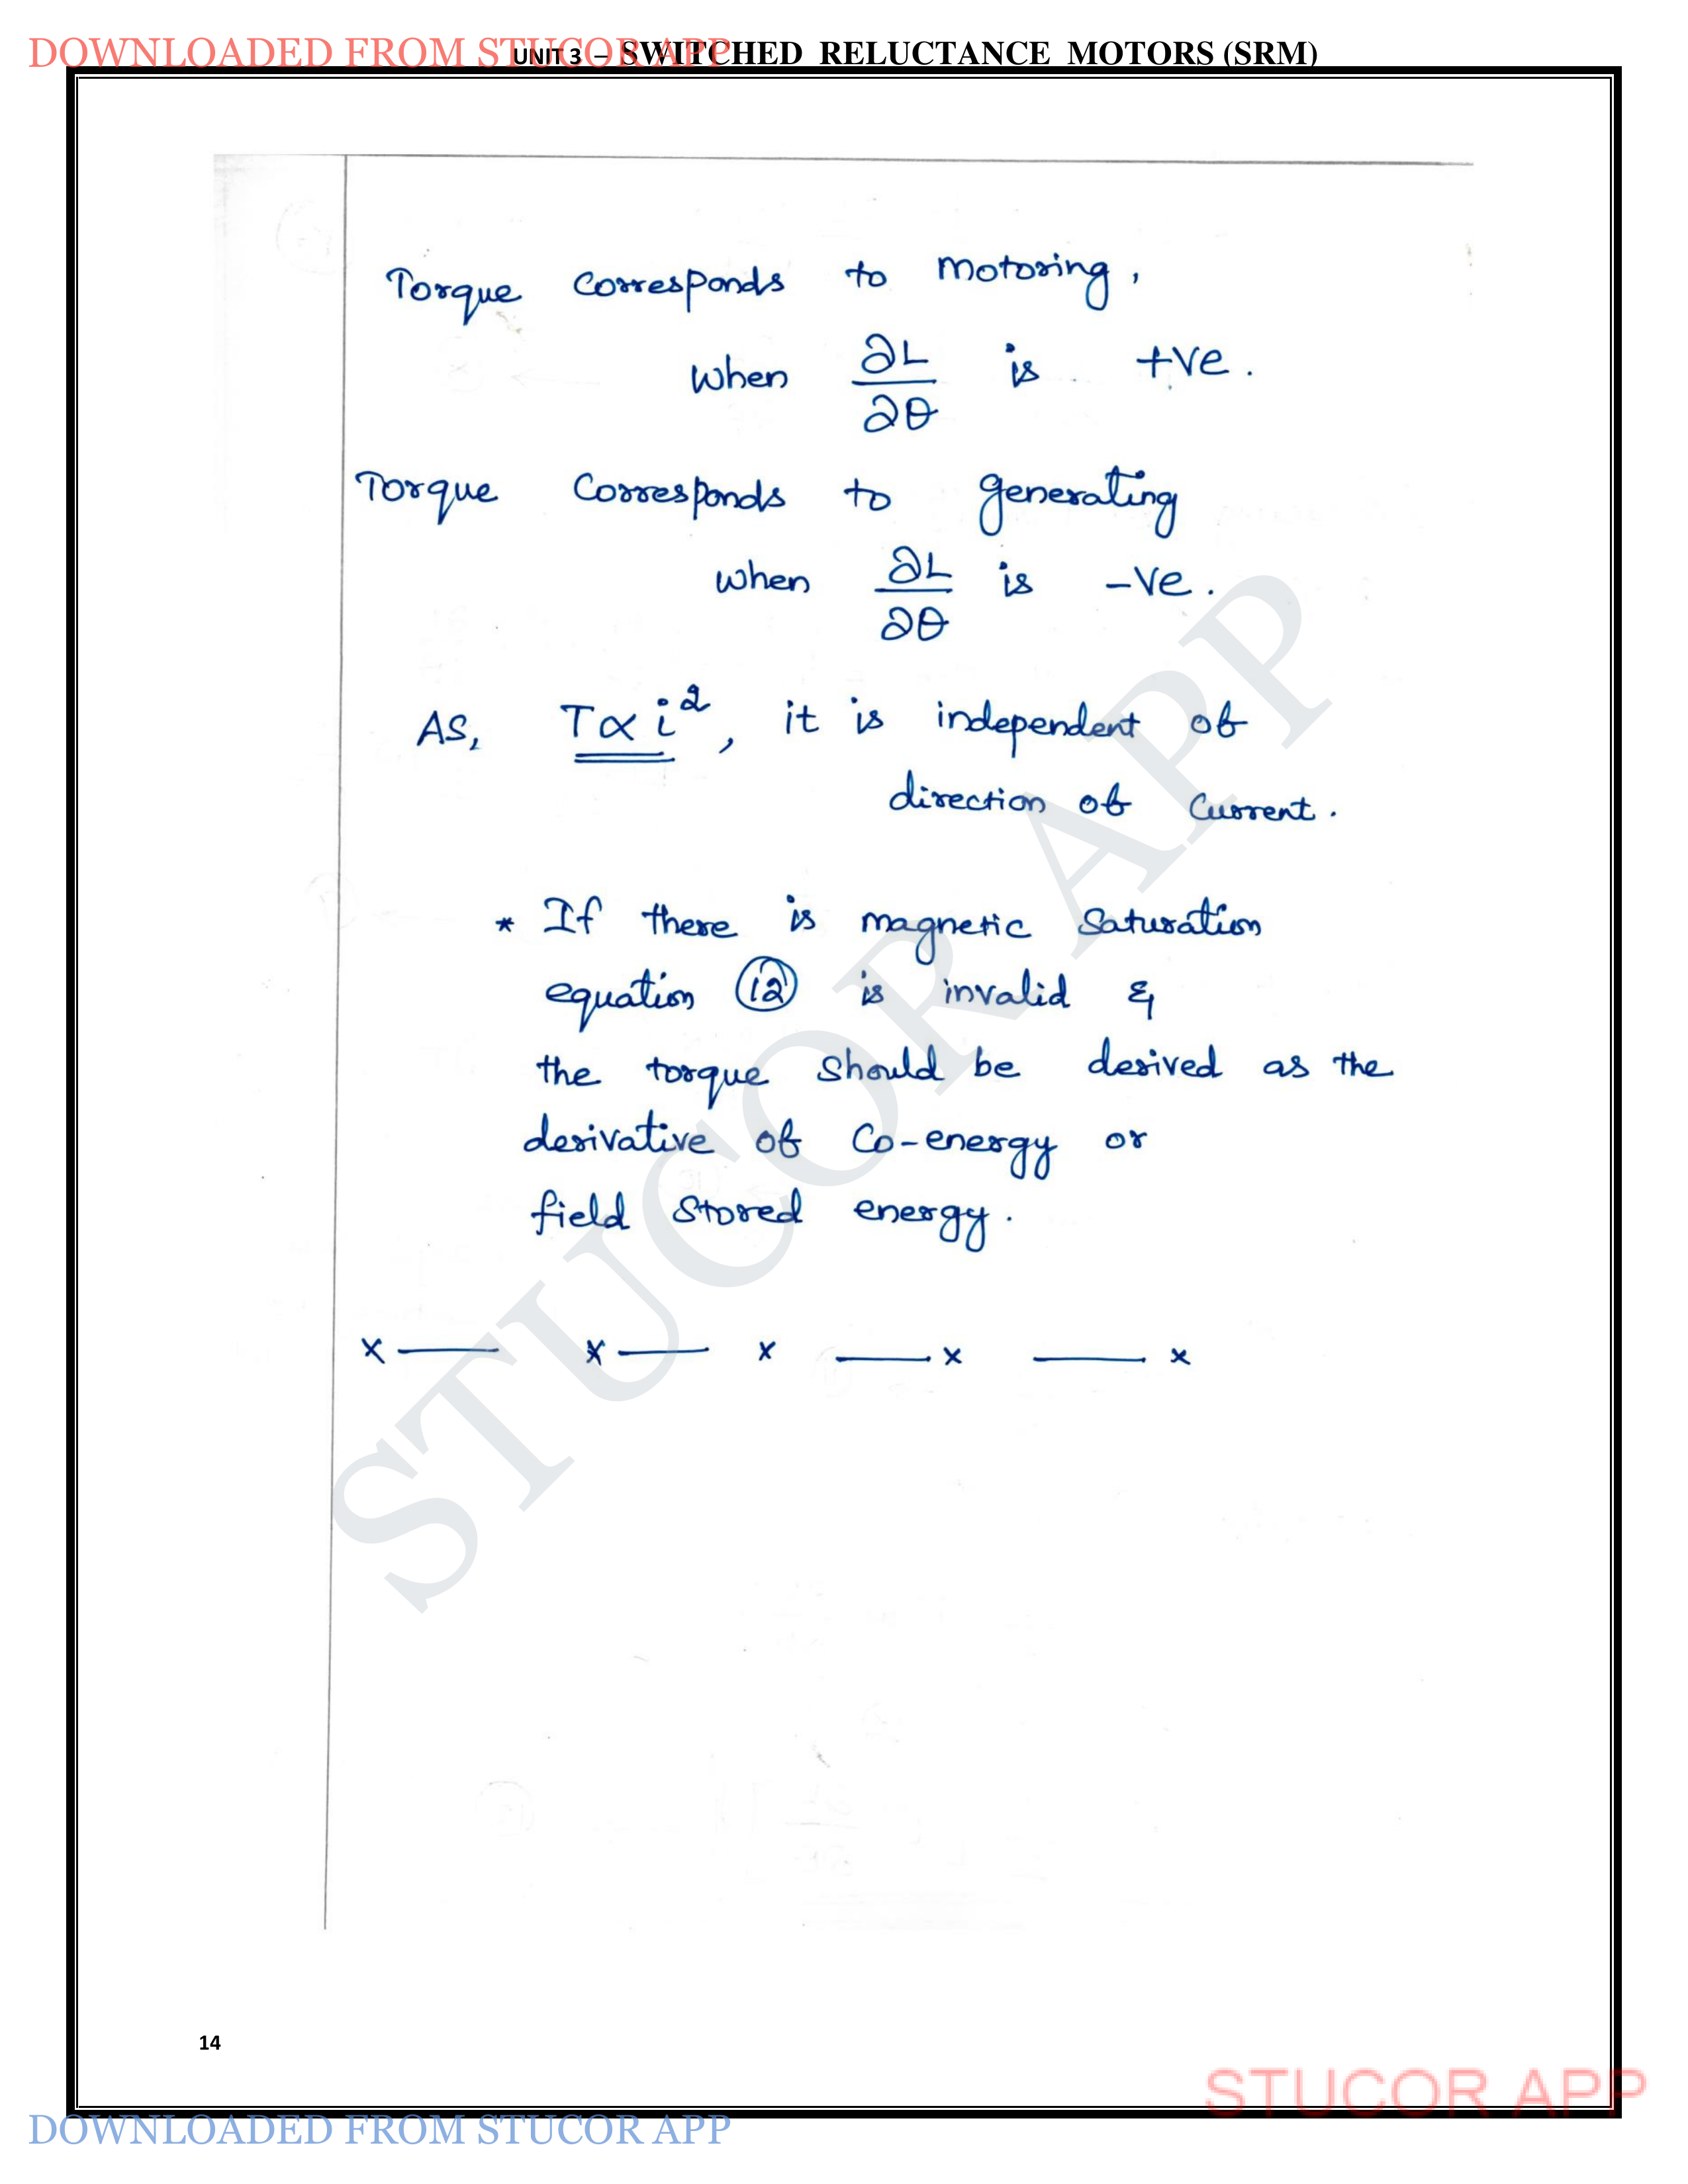 DOWNLOADED FROM STUCOR APP
UNIT 3 – SWITCHED RELUCTANCE MOTORS (SRM)
Torque corresponds to motoring,
when ∂L/∂θ is +ve.
Torque corresponds to generating
when ∂L/∂θ is -ve.
As, T∝i², it is independent of
direction of current.
* If there is magnetic saturation
equation ⑫ is invalid &
the torque should be derived as the
derivative of Co-energy or
field stored energy.
x — x — x — x — x
STUCOR APP
14
STUCOR APP
DOWNLOADED FROM STUCOR APP